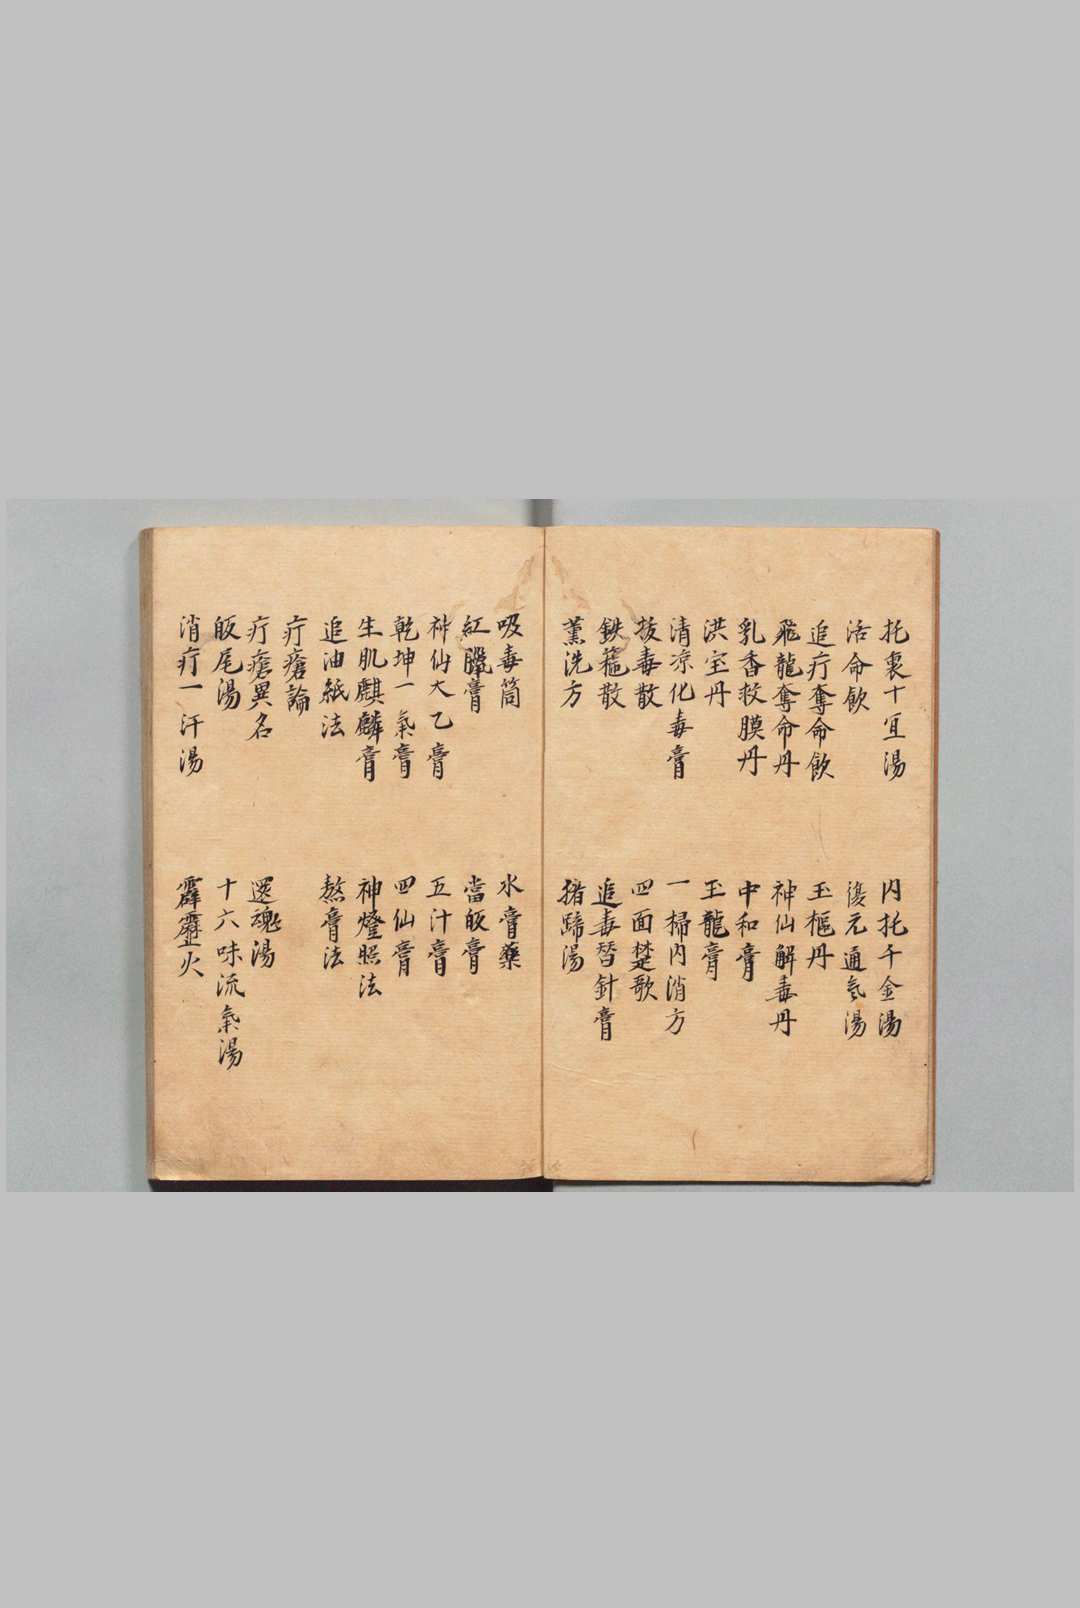 托裏十宣湯　內托千金湯
活命飲　復元通氣湯
追疔奪命飲　玉樞丹
飛龍奪命丹　神仙解毒丹
乳香救膜丹　中和膏
洪宝丹　玉龍膏
清凉化毒膏　一掃內消方
拔毒散　四面楚歌
鉄箍散　追毒替針膏
薰洗方　猪蹄湯
吸毒筒　水膏藥
紅臘膏　當皈膏
神仙太乙膏　五汁膏
乾坤一氣膏　四仙膏
生肌麒麟膏　神燈照法
追油紙法　熬膏法
疔瘡論
疔瘡異名　還魂湯
皈尾湯　十六味流氣湯
消疔一汗湯　霹靂火